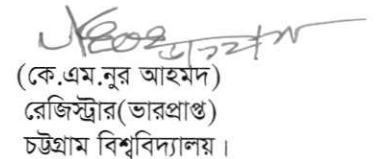 (কে.এম.নুর আহমদ)
রেজিস্ট্রার(ভারপ্রাপ্ত)
চট্টগ্রাম বিশ্ববিদ্যালয়।